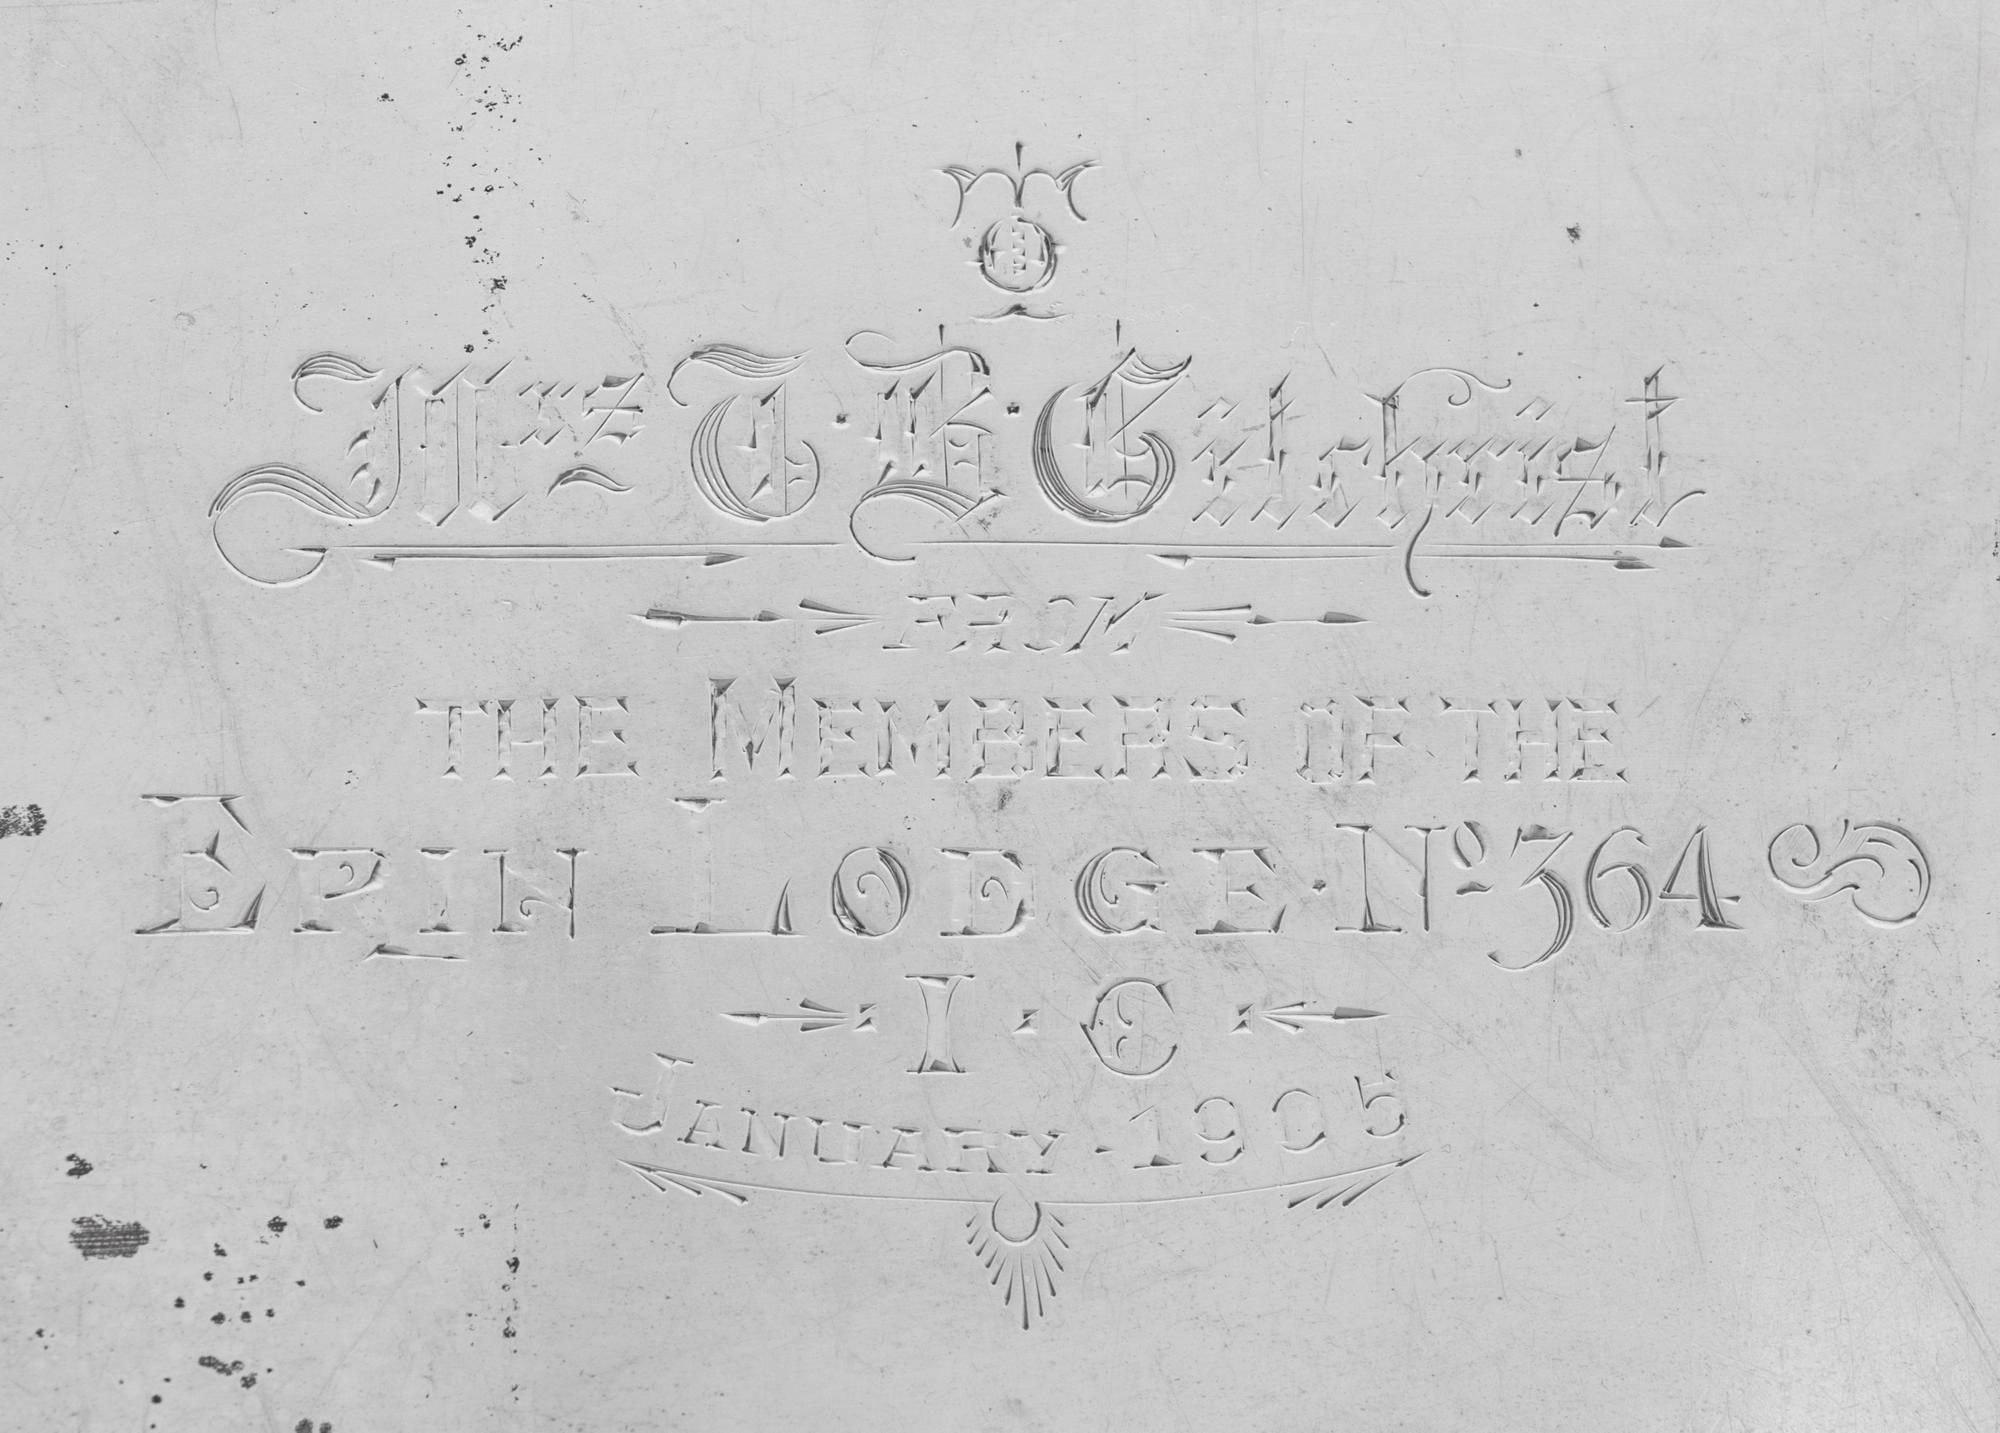 Mrs T·B·Gilchrist
FROM
THE MEMBERS OF THE
ERIN LODGE·Nº 364
I·C
JANUARY·1905